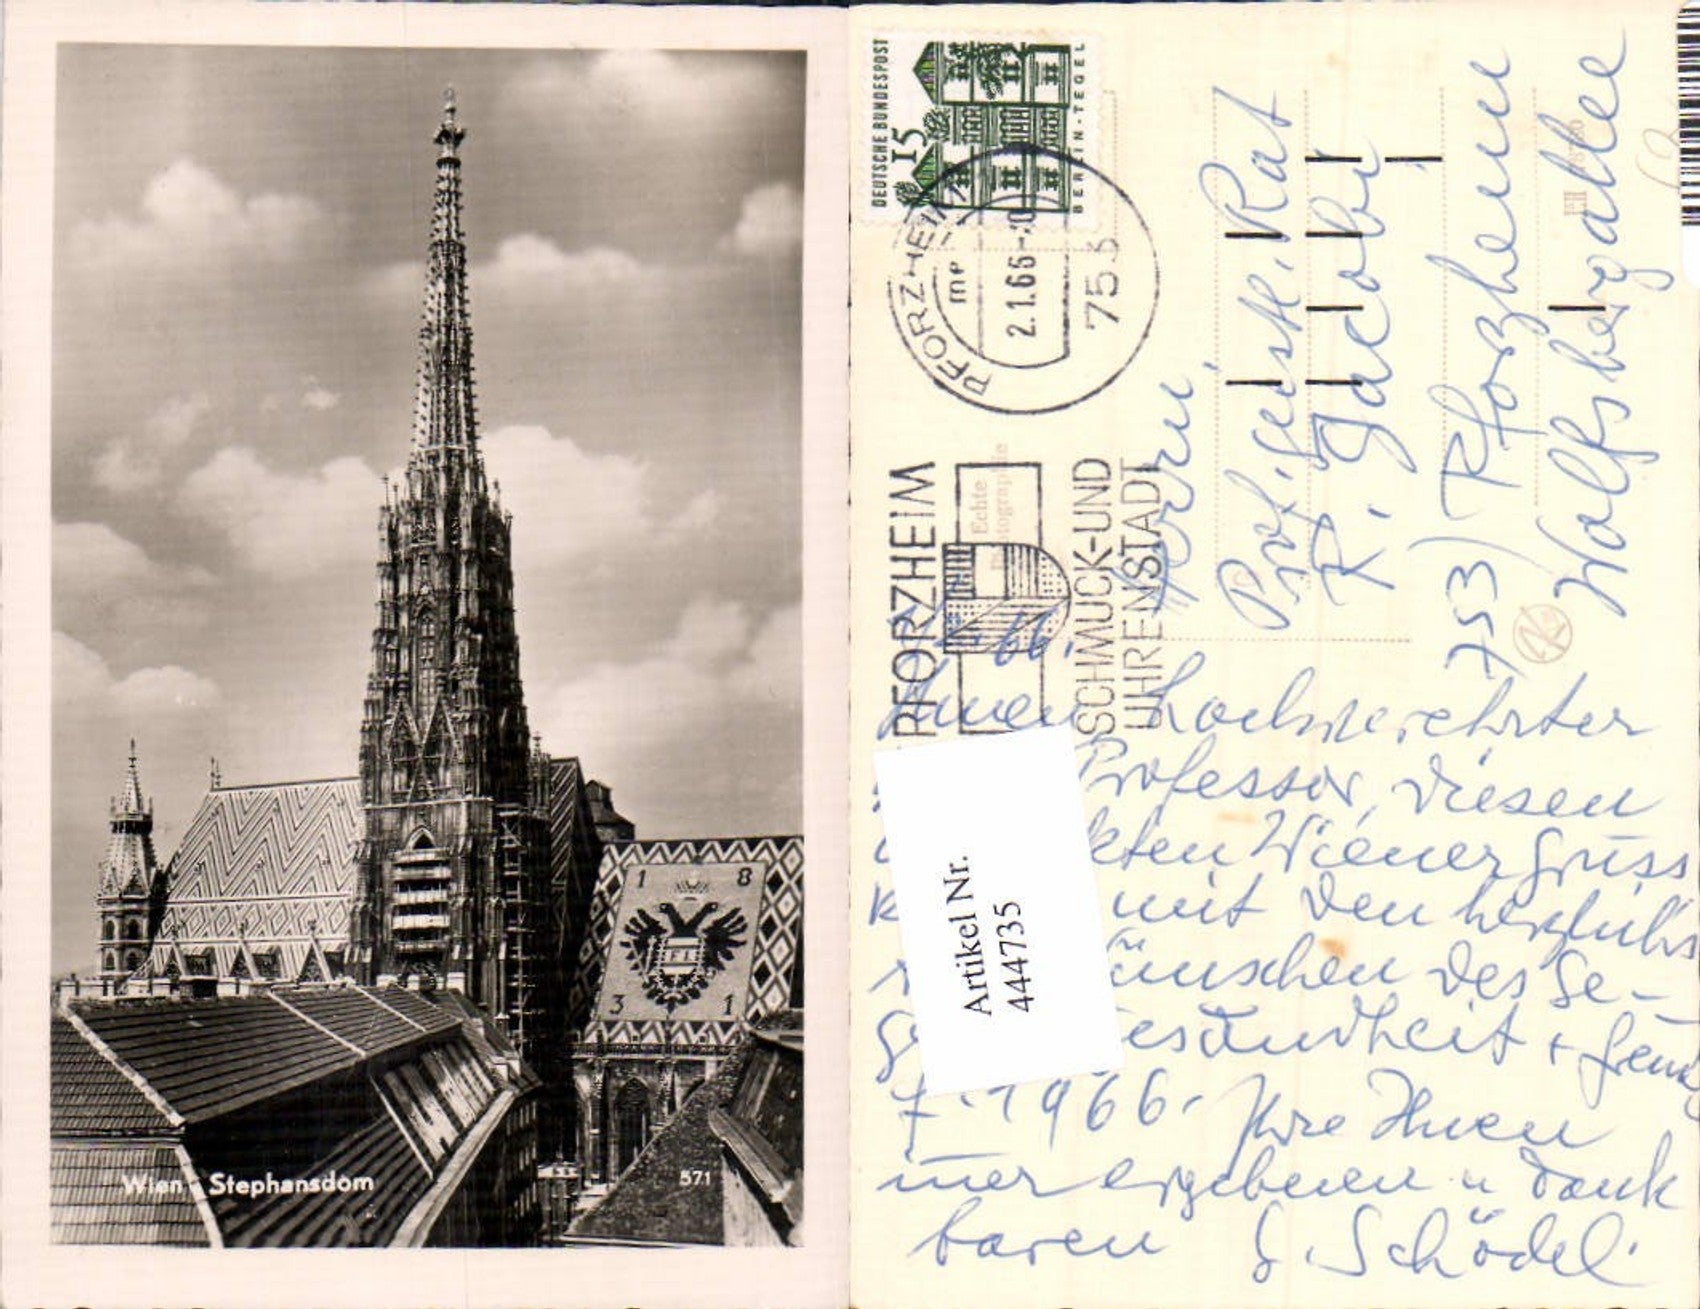 1 8
3 1
Wien - Stephansdom
571
DEUTSCHE BUNDESPOST
15
BERLIN-TEGEL
PFORZHEIM
me
2.1.66-20
753
PFORZHEIM
SCHMUCK-UND
UHRENSTADT
Echte
Photographie
Herrn,
Prof. geistl. Rat
R. Jacobi
753) Pforzheim
Wolfsbergallee
66.
Ihnen hochverehrter
Professor, diesen
kten Wiener Gruss
mit den herzlichs
ünschen des Ge-
esundheit +
1966. Ihre Ihnen
mer ergebenen u dank
baren S. Schödel.
Artikel Nr.
444735